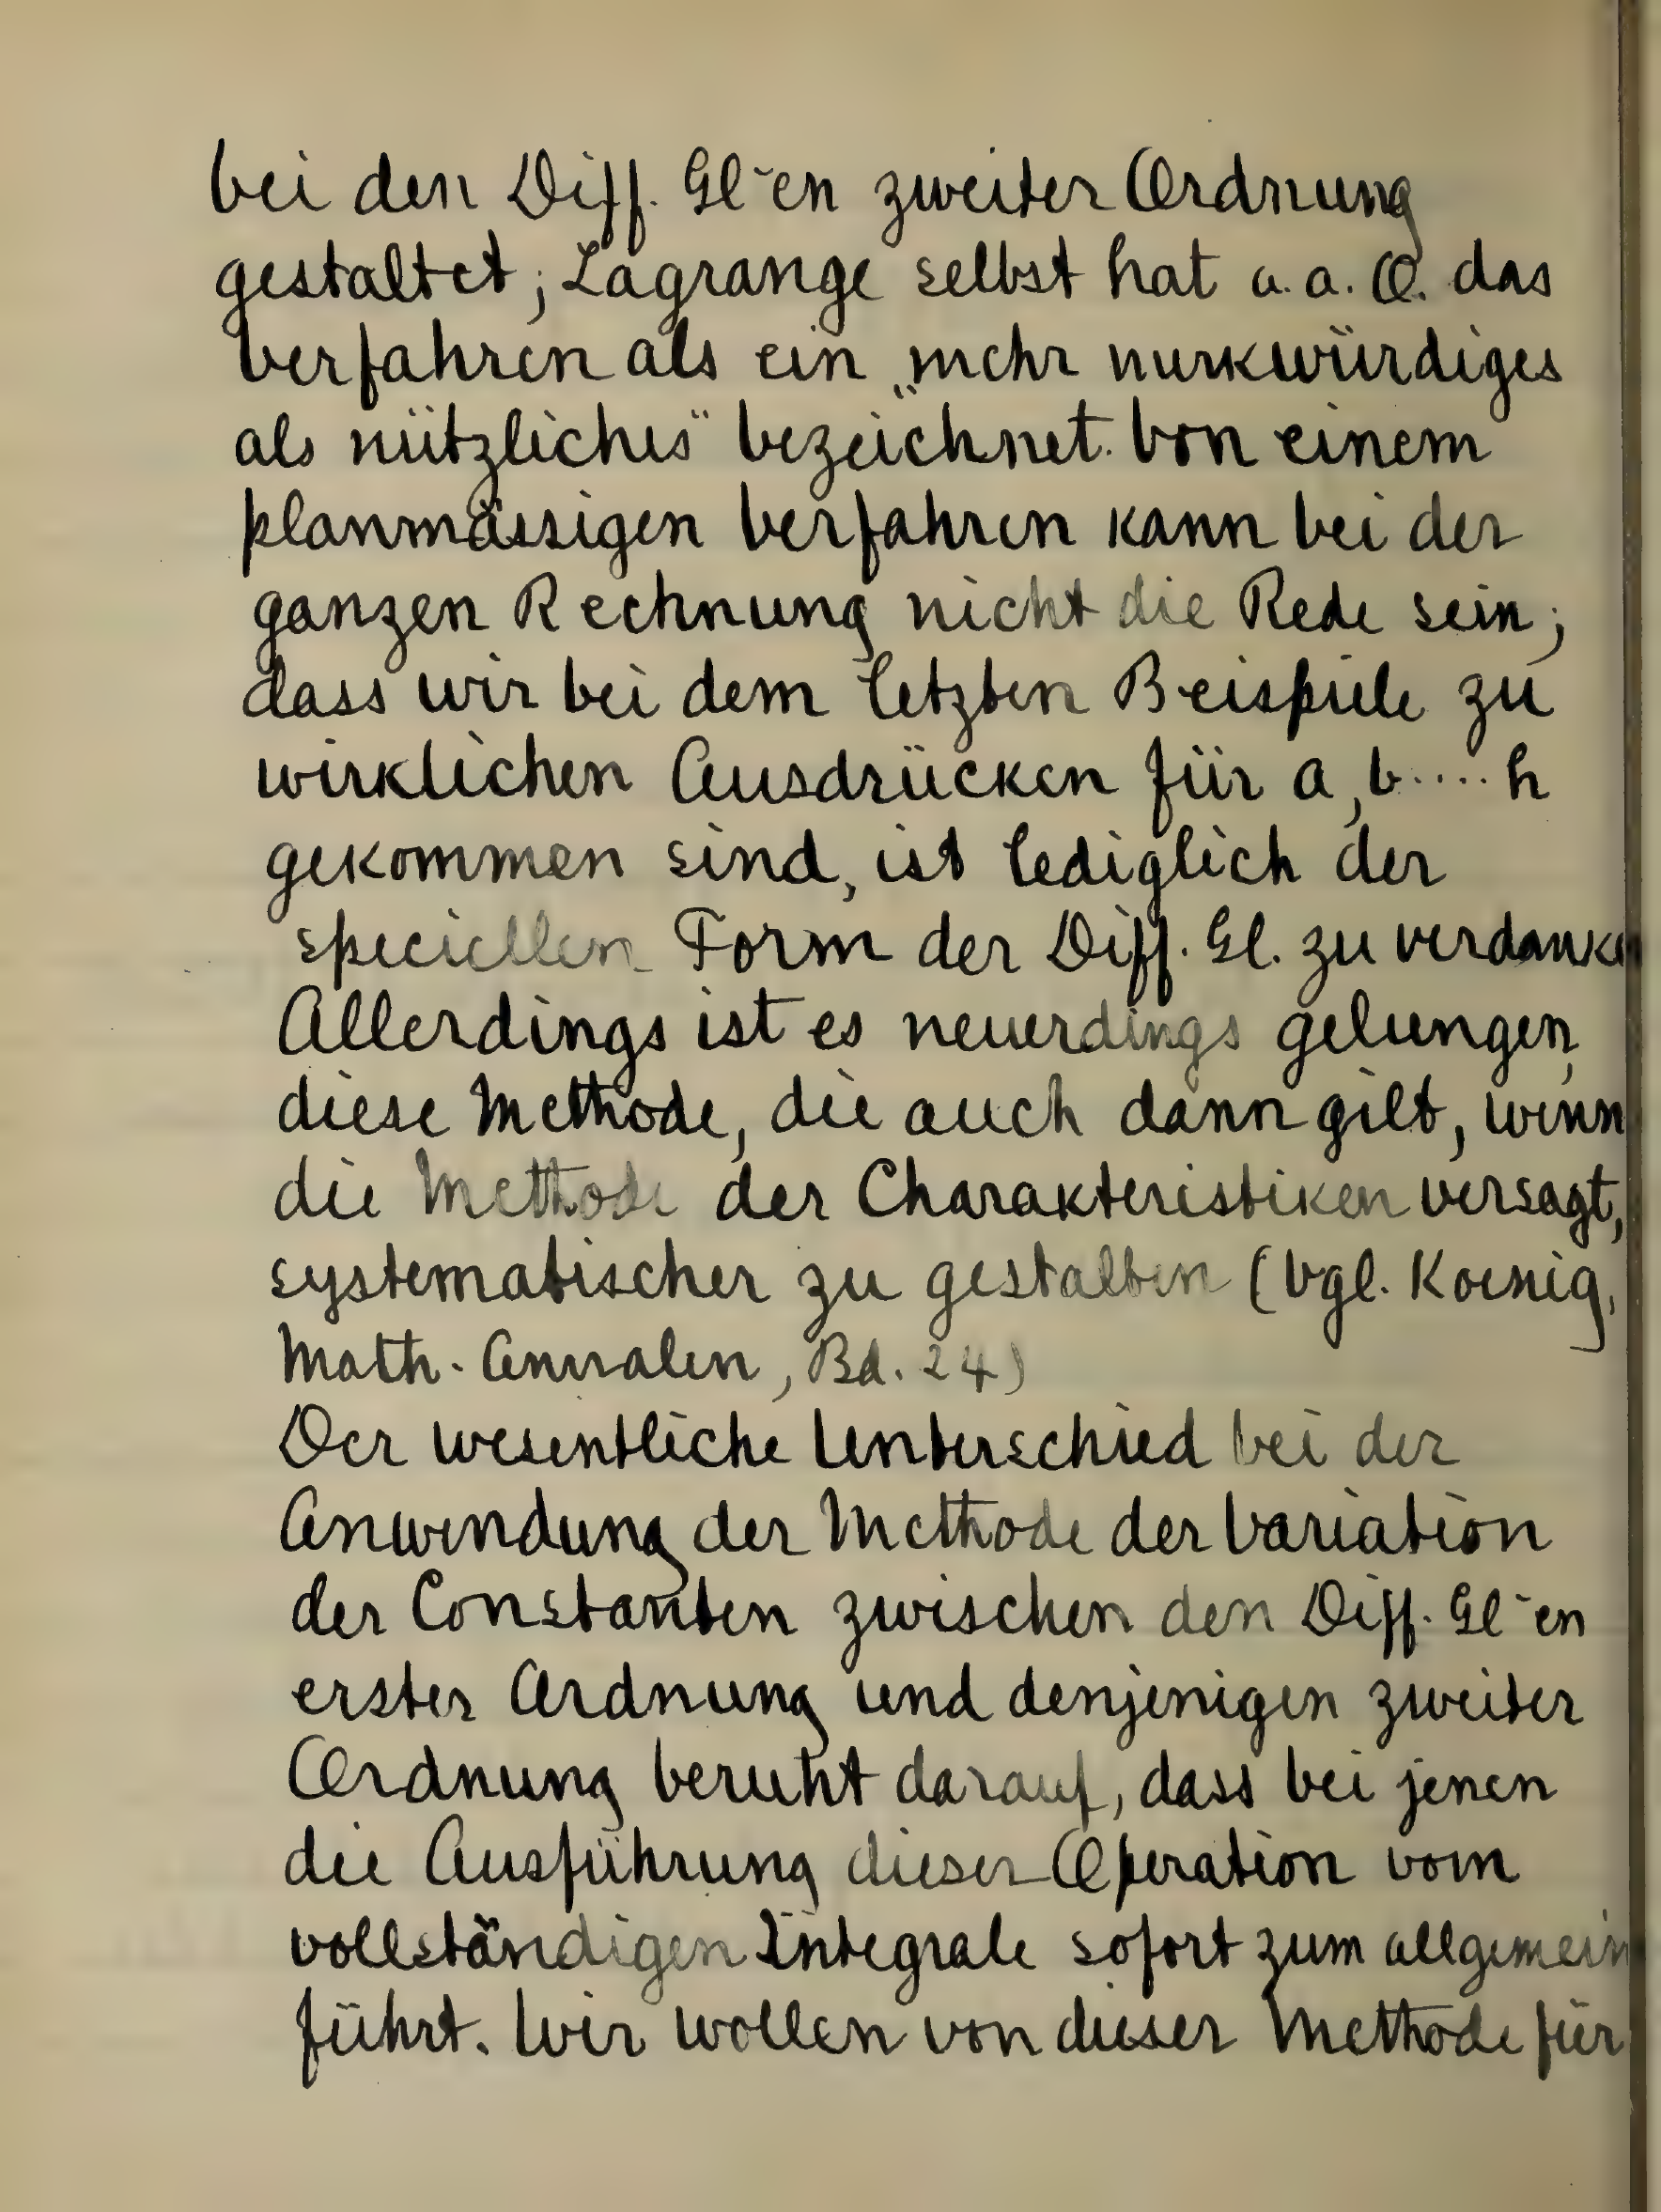 bei den Diff. Gl-en zweiter Ordnung
gestaltet; Lagrange selbst hat a. a. O. das
Verfahren als ein „mehr merkwürdiges
als nützliches" bezeichnet. Von einem
planmässigen Verfahren kann bei der
ganzen Rechnung nicht die Rede sein;
dass wir bei dem letzten Beispiele zu
wirklichen Ausdrücken für a, b .... h
gekommen sind, ist lediglich der
speciellen Form der Diff. Gl. zu verdanken
Allerdings ist es neuerdings gelungen,
diese Methode, die auch dann gilt, wenn
die Methode der Charakteristiken versagt,
systematischer zu gestalten (Vgl. Koenig,
Math. Annalen, Bd. 24)
Der wesentliche Unterschied bei der
Anwendung der Methode der Variation
der Constanten zwischen den Diff. Gl-en
erster Ordnung und denjenigen zweiter
Ordnung beruht darauf, dass bei jenen
die Ausführung dieser Operation vom
vollständigen Integrale sofort zum allgemein
führt. Wir wollen von dieser Methode für